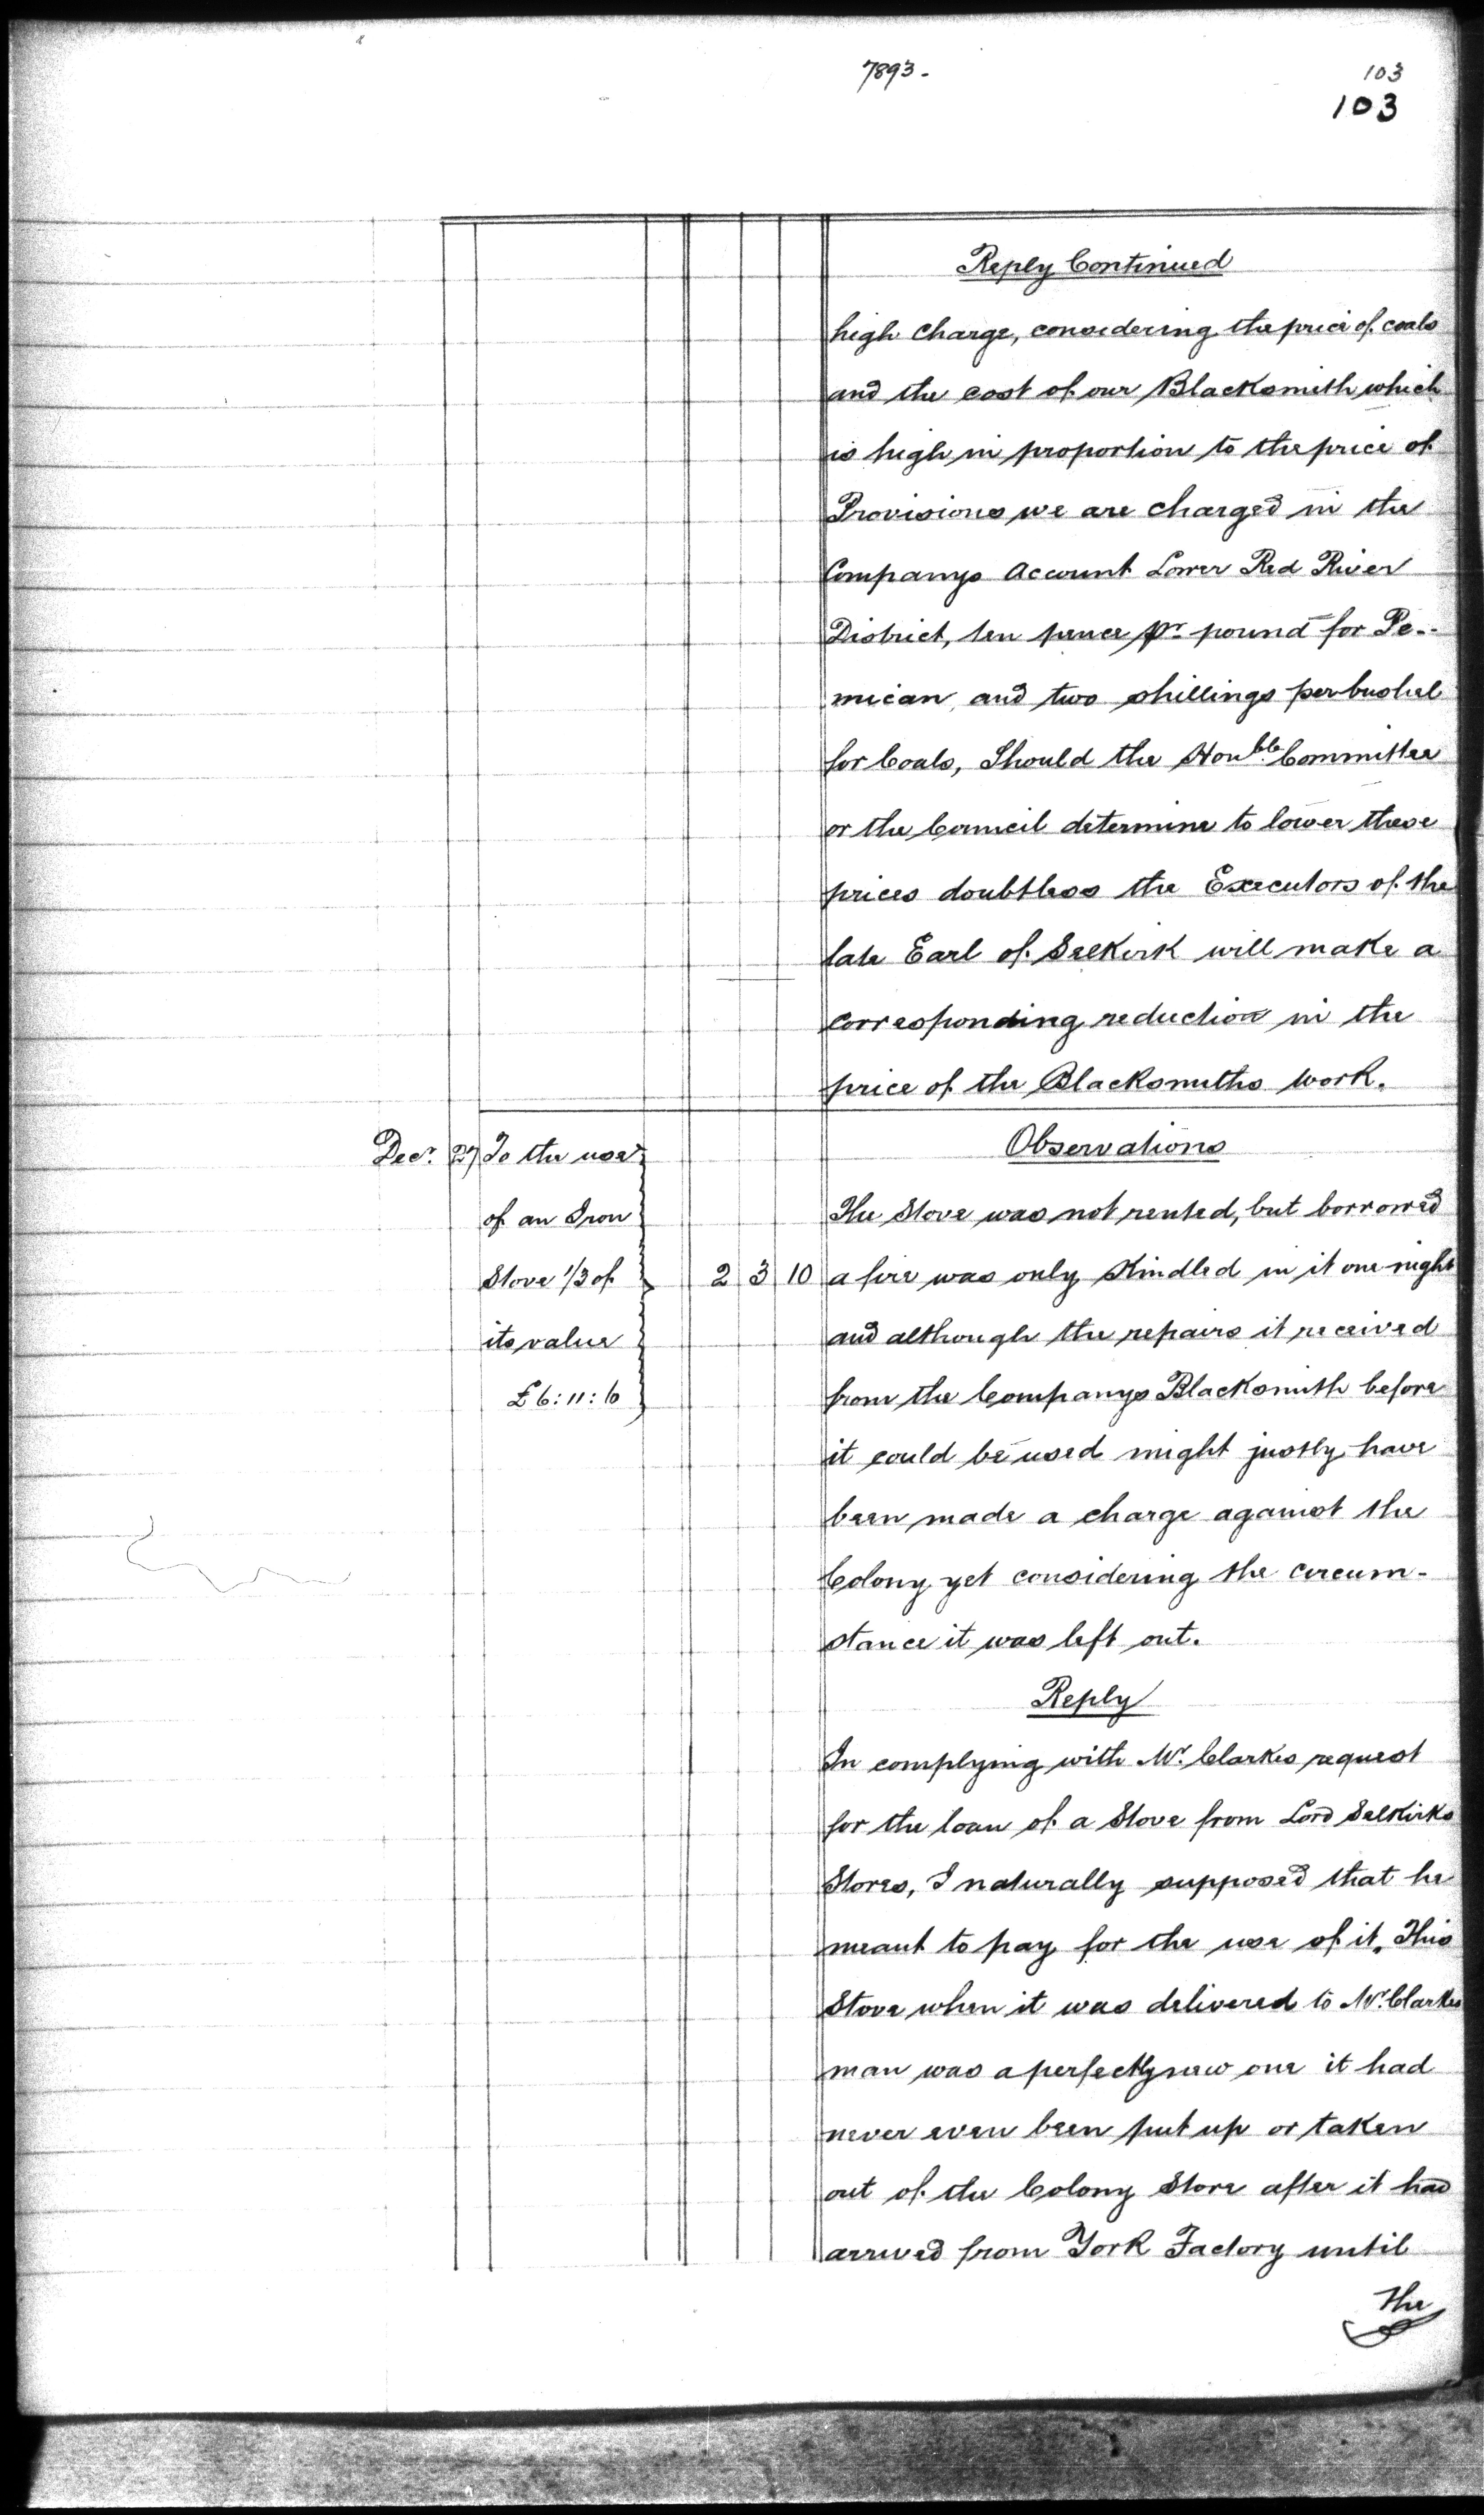 7893.
103
103
Reply Continued
high Charge, considering the price of coals
and the cost of our Blacksmith which
is high in proportion to the price of
Provisions we are charged in the
Companys Account Lower Red River
District, ten pence pr pound for Pe-
mican, and two shillings per bushel
for Coals, Should the Honble Committee
or the Council determine to lower these
prices doubtless the Executors of the
late Earl of Selkirk will make a
corresponding reduction in the
price of the Blacksmiths work.
Observations
Decr. 27 To the use
of an Iron
Stove 1/3 of
its value
£6:11:6
2 3 10
The Stove was not rented, but borrowed
a fire was only Kindled in it one night
and although the repairs it received
from the Companys Blacksmith before
it could be used might justly have
been made a charge against the
Colony yet considering the circum-
stance it was left out.
Reply
In complying with Mr. Clarkes request
for the loan of a Stove from Lord Selkirks
Stores, I naturally supposed that he
meant to pay for the use of it, This
Stove when it was delivered to Mr. Clarkes
man was a perfectly new one it had
never even been put up or taken
out of the Colony Store after it had
arrived from York Factory until
The